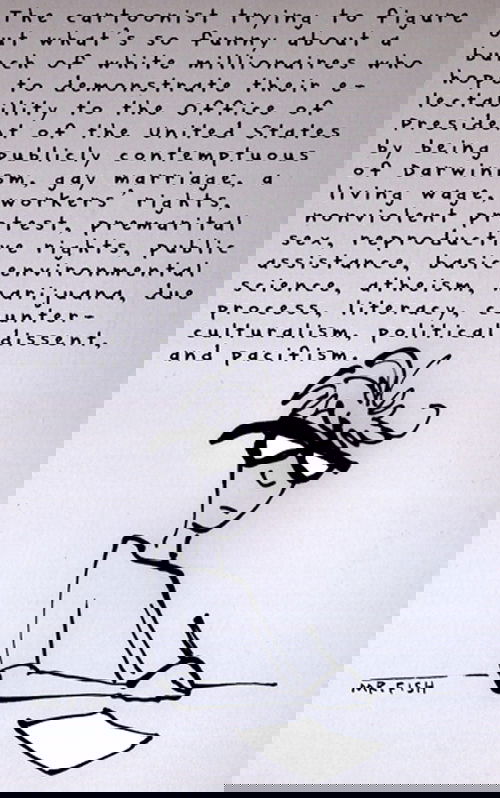 The cartoonist trying to figure
out what's so funny about a
bunch of white millionaires who
hope to demonstrate their e-
lectability to the Office of
President of the United States
by being publicly contemptuous
of Darwinism, gay marriage, a
living wage, workers' rights,
nonviolent protest, premarital
sex, reproductive rights, public
assistance, basic environmental
science, atheism, marijuana, due
process, literacy, counter-
culturalism, political dissent,
and pacifism.
MR. FISH